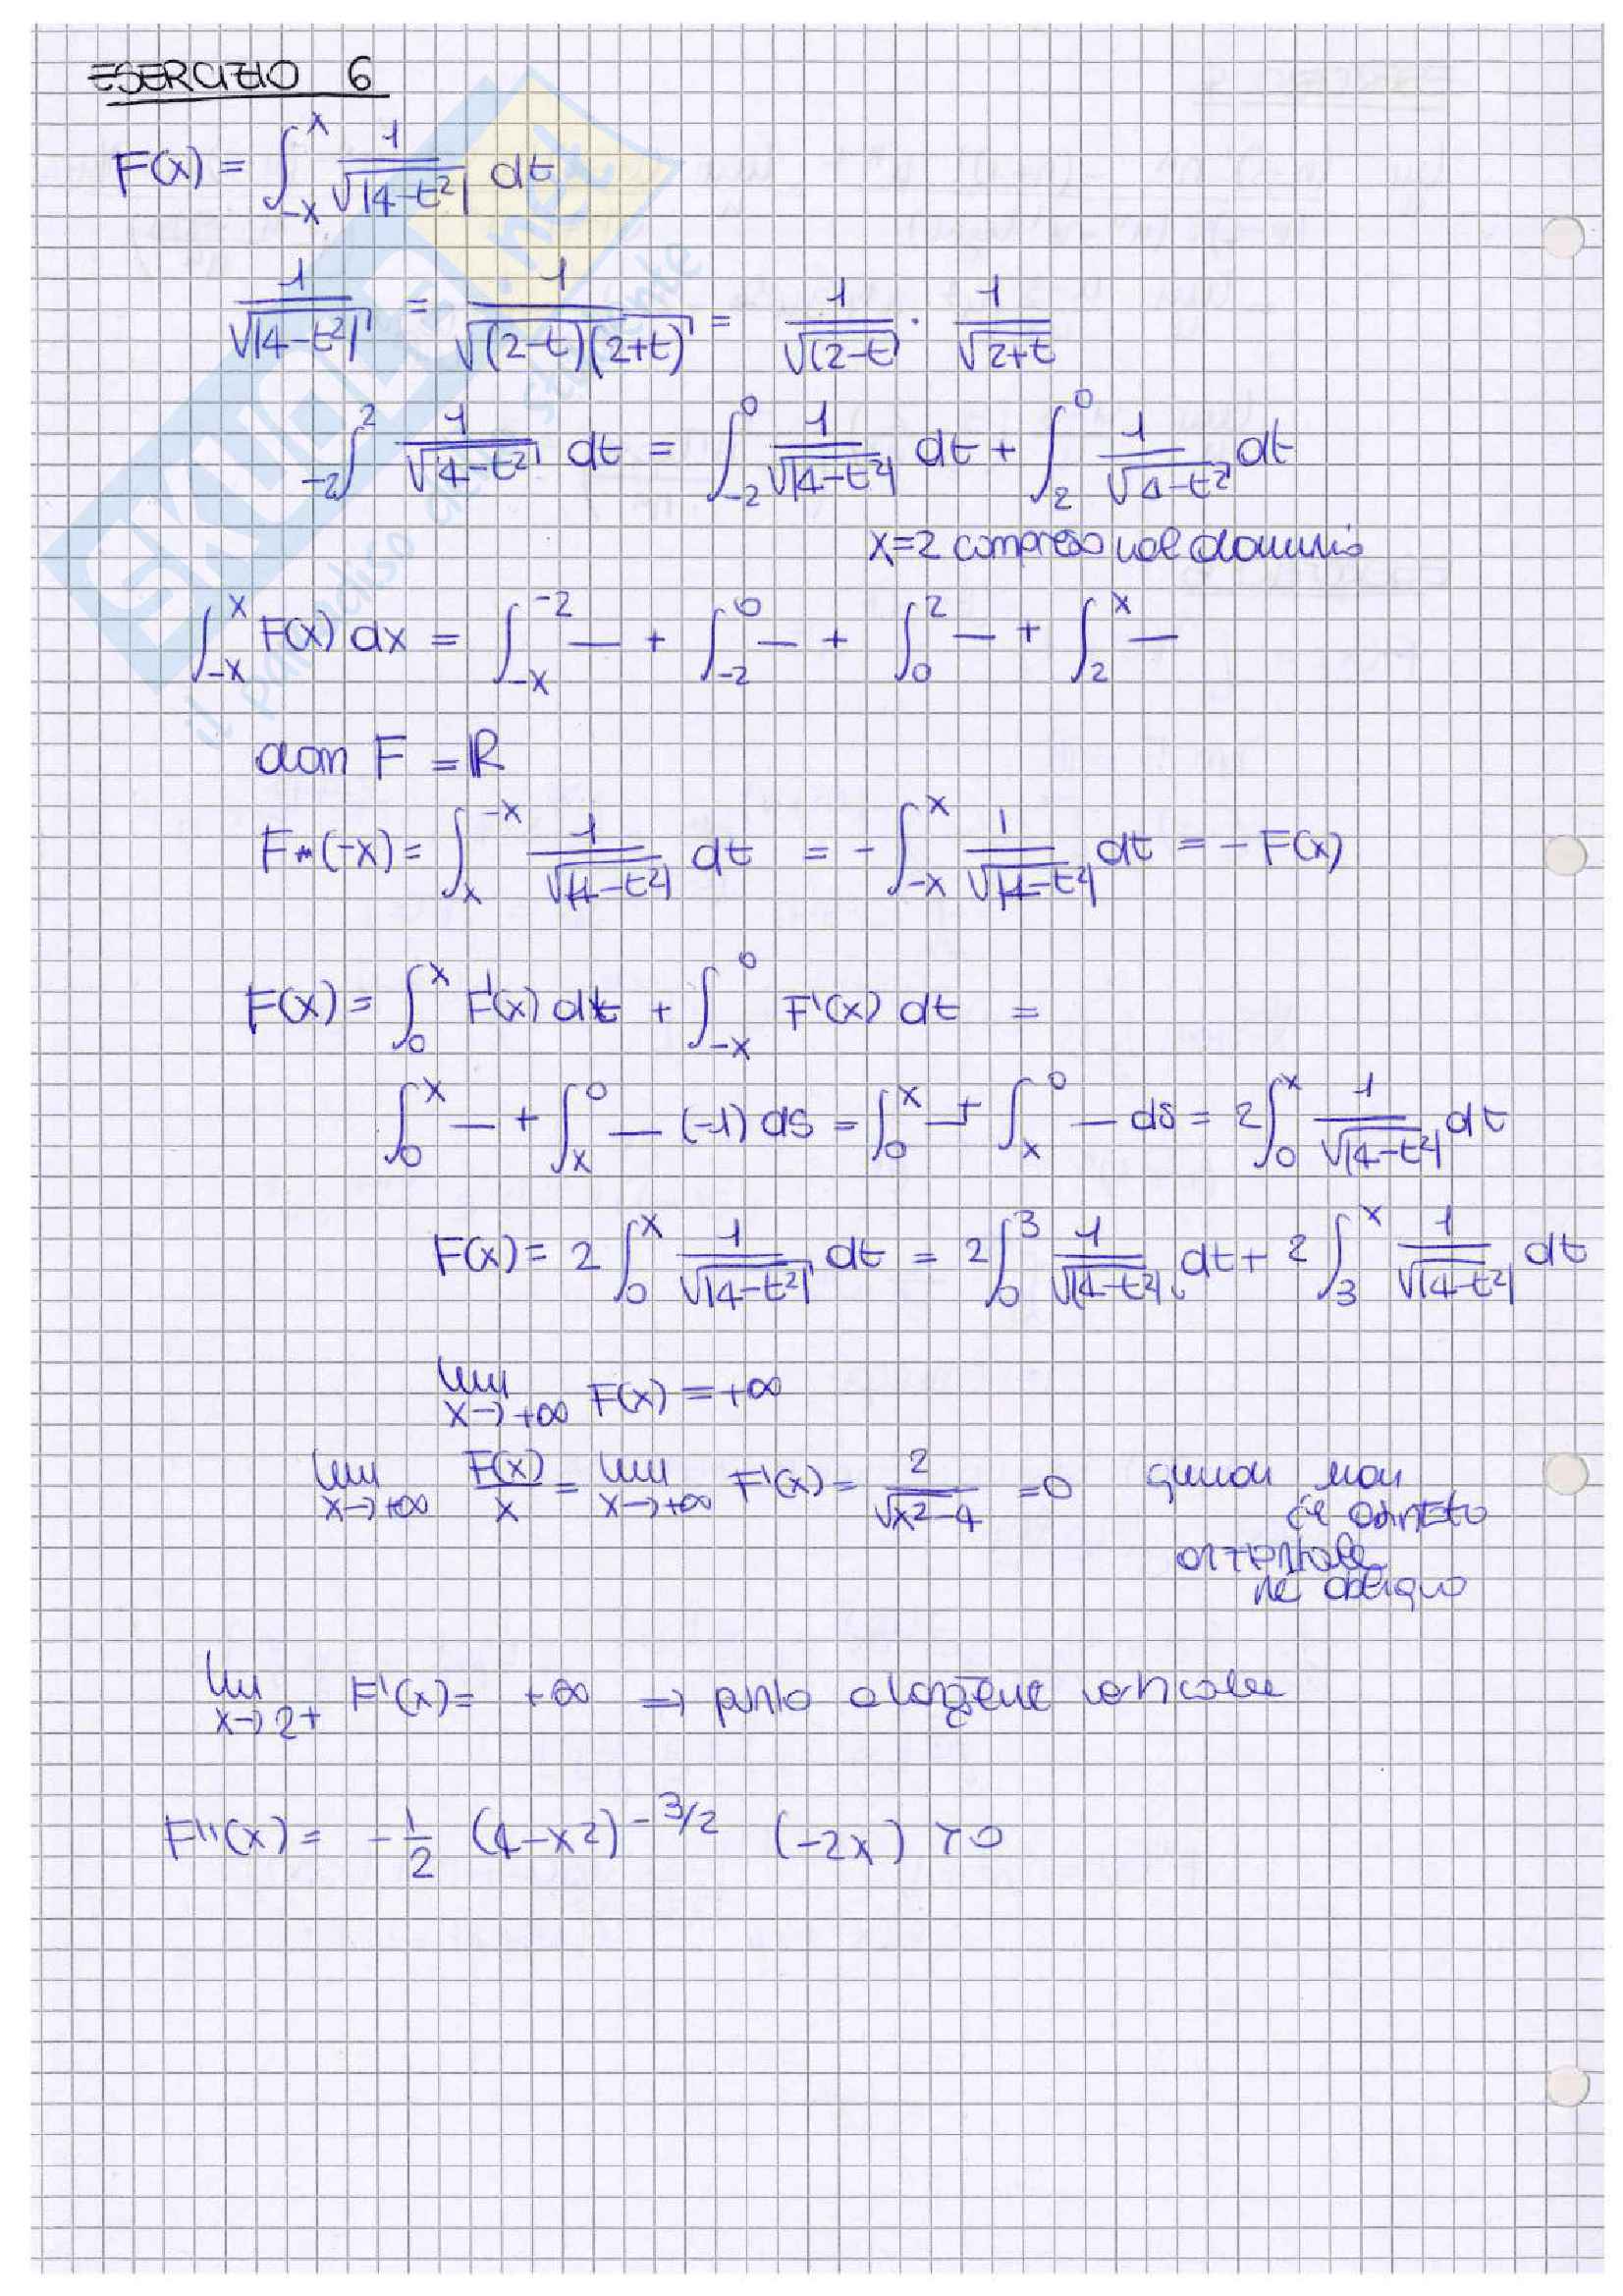 ESERCIZIO 6
F(x) = ∫_{-x}^{x} 1/√|4-t²| dt
1/√|4-t²| = 1/√(2-t)(2+t) = 1/√(2-t) · 1/√2+t
∫_{-2}^{2} 1/√|4-t²| dt = ∫_{-2}^{0} 1/√|4-t²| dt + ∫_{2}^{0} 1/√4-t² dt
x=2 compreso nel dominio
∫_{-x}^{x} F(x) dx = ∫_{-x}^{-2} — + ∫_{-2}^{0} — + ∫_{0}^{2} — + ∫_{2}^{x} —
dom F = ℝ
F(-x) = ∫_{x}^{-x} 1/√|4-t²| dt = - ∫_{-x}^{x} 1/√|4-t²| dt = - F(x)
F(x) = ∫_{0}^{x} F'(x) dt + ∫_{-x}^{0} F'(x) dt =
∫_{0}^{x} — + ∫_{x}^{0} — (-1) ds = ∫_{0}^{x} — + ∫_{x}^{0} — ds = 2∫_{0}^{x} 1/√|4-t²| dt
F(x) = 2 ∫_{0}^{x} 1/√|4-t²| dt = 2∫_{0}^{3} 1/√|4-t²| dt + 2 ∫_{3}^{x} 1/√|4-t²| dt
lim x→+∞ F(x) = +∞
lim x→+∞ F(x)/x = lim x→+∞ F'(x) = 2/√x²-4 = 0 quindi non
c'è asintoto
orizzontale
né obliquo
lim x→2+ F'(x) = +∞ ⇒ punto a tangente verticale
F''(x) = -1/2 (4-x²)^{-3/2} (-2x) > 0
SKUOLA.net
il paradiso dello studente